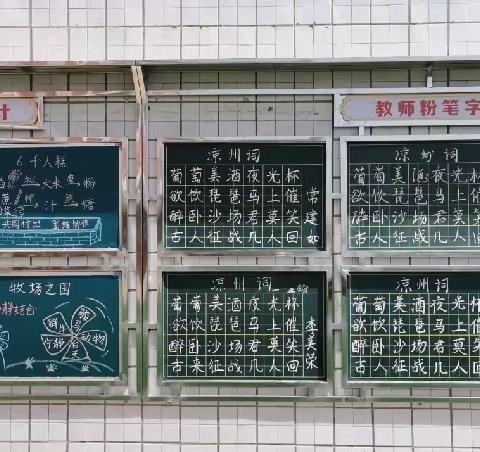 计
教师粉笔字
6 千人糕
牧场之国
静结合
宁静
动物
凉州词
葡萄美酒夜光杯
欲饮琵琶马上催
醉卧沙场君莫笑
古人征战几人回
常建如
凉州词
葡萄美酒夜光杯
欲饮琵琶马上催
醉卧沙场君莫笑
古人征战几人回
凉州词
葡萄美酒夜光杯
欲饮琵琶马上催
醉卧沙场君莫笑
古来征战几人回
李美荣
凉州词
葡萄美酒夜光杯
欲饮琵琶马上催
醉卧沙场君莫笑
古人征战几人回